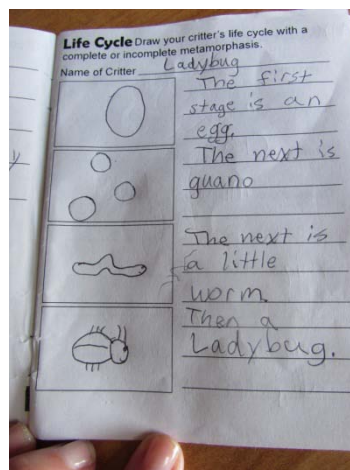 Life Cycle Draw your critter's life cycle with a
complete or incomplete metamorphasis.
Name of Critter Ladybug
The first
stage is an
egg.
The next is
guano
The next is
a little
worm
Then a
Ladybug.